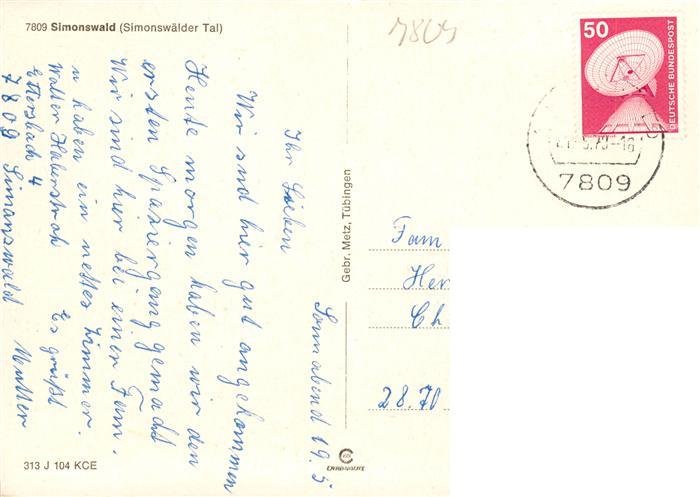 7809 Simonswald (Simonswälder Tal)
7809
50
DEUTSCHE BUNDESPOST
7809
Sonnabend 19.5
Ihr Lieben
Wir sind hier gut angekommen
Heute morgen haben wir den
ersten Spaziergang gemacht
Wir sind hier bei einer Fam.
u haben ein nettes Zimmer.
Walter Haberstroh Es grüßt
Ettersbach 4 Mutter
7809 Simonswald
Gebr. Metz, Tübingen
Fam
Her
Ch
28.70
313 J 104 KCE